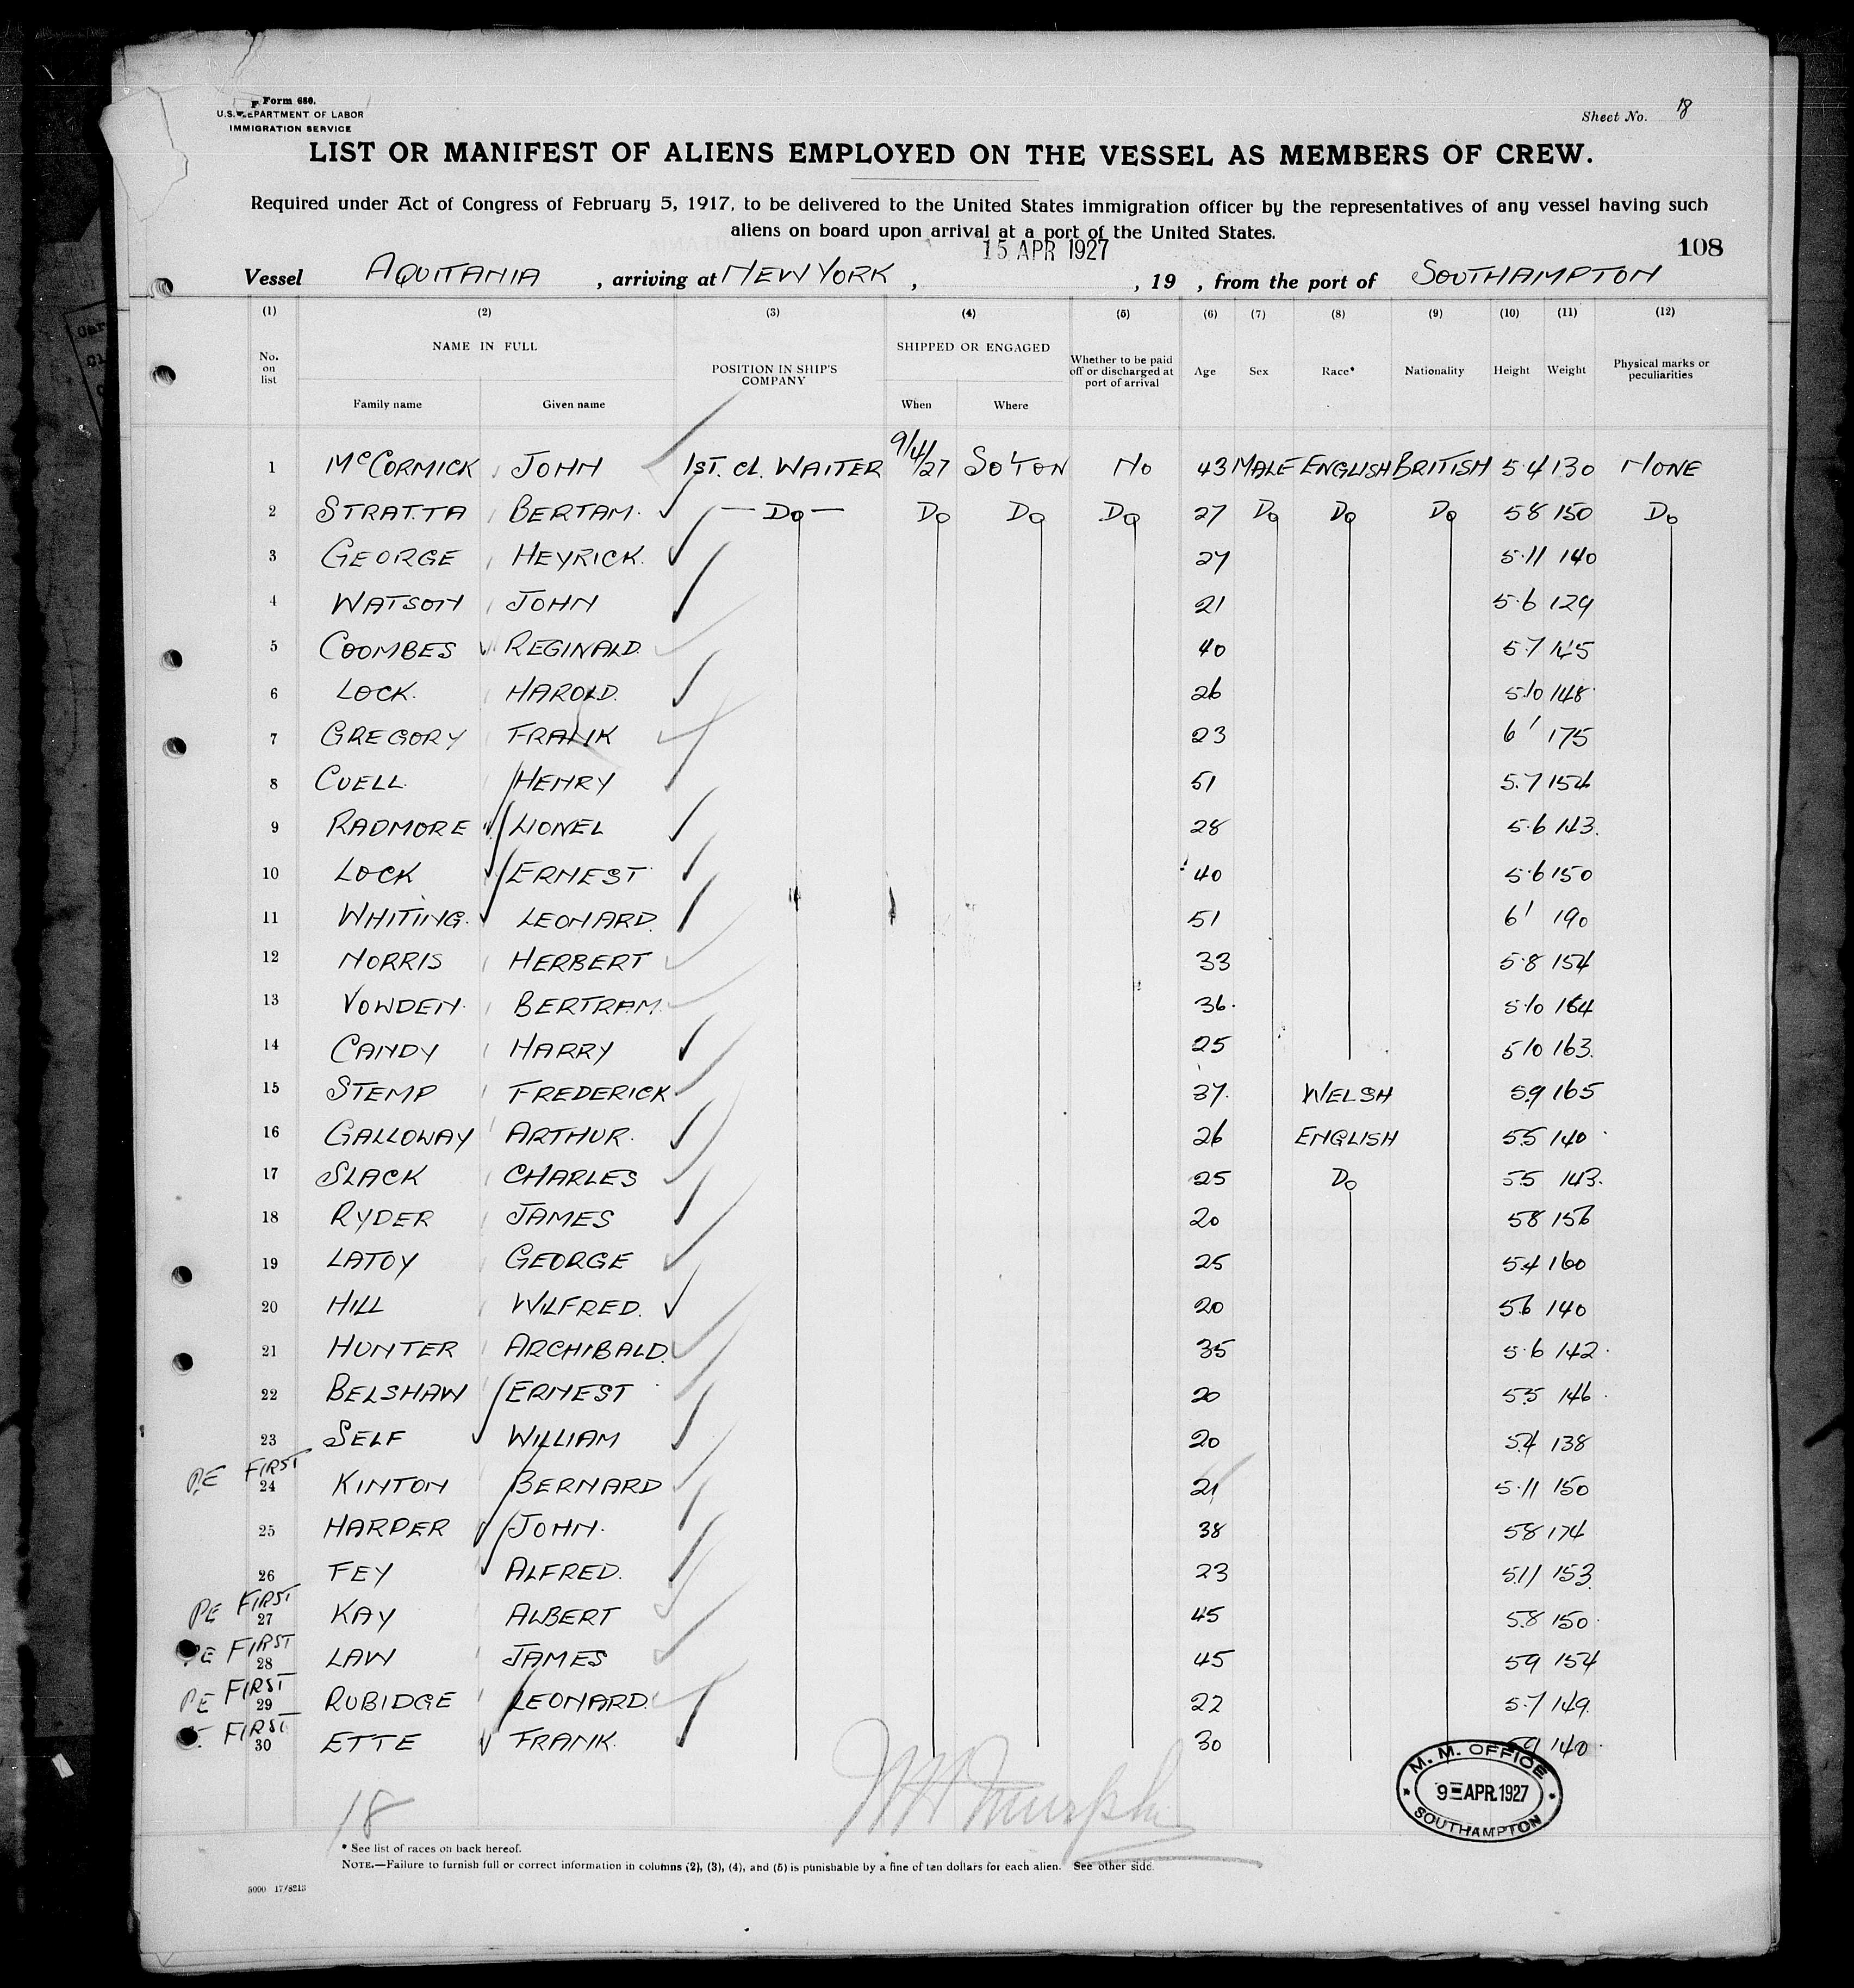 Form 680.
U.S. DEPARTMENT OF LABOR
IMMIGRATION SERVICE
Sheet No. 18
LIST OR MANIFEST OF ALIENS EMPLOYED ON THE VESSEL AS MEMBERS OF CREW.
Required under Act of Congress of February 5, 1917, to be delivered to the United States immigration officer by the representatives of any vessel having such
aliens on board upon arrival at a port of the United States.
15 APR 1927
108
Vessel AQUITANIA, arriving at NEW YORK, , 19 , from the port of SOUTHAMPTON
(1) (2) (3) (4) (5) (6) (7) (8) (9) (10) (11) (12)
No. on list NAME IN FULL Family name Given name POSITION IN SHIP'S COMPANY SHIPPED OR ENGAGED When Where Whether to be paid off or discharged at port of arrival Age Sex Race* Nationality Height Weight Physical marks or peculiarities
1 McCORMICK JOHN 1ST. Cl. WAITER 9/4/27 SO'TON No 43 MALE ENGLISH BRITISH 5·4 130 NONE
2 STRATTA BERTAM. — Do — Do Do Do 27 Do Do Do 58 150 Do
3 GEORGE HEYRICK. 27 5·11 140
4 WATSON JOHN 21 5·6 129
5 COOMBES REGINALD. 40 5·7 145
6 LOCK. HAROLD. 26 5·10 148
7 GREGORY FRANK 23 6' 175
8 CUELL. HENRY 51 5.7 154
9 RADMORE LIONEL 28 5·6 143.
10 LOCK ERNEST 40 5·6 150
11 WHITING. LEONARD. 51 6' 190
12 NORRIS HERBERT 33 5·8 154
13 VOWDEN. BERTRAM. 36. 5·10 164
14 CANDY HARRY 25 510 163.
15 STEMP FREDERICK 37. WELSH 5.9 165
16 GALLOWAY ARTHUR. 26 ENGLISH 5.5 140
17 SLACK CHARLES 25 Do 5.5 143.
18 RYDER JAMES 20 58 156
19 LATOY GEORGE 25 5.4 160
20 HILL WILFRED. 20 56 140
21 HUNTER ARCHIBALD. 35 5·6 142.
22 BELSHAW ERNEST 20 5.5 146.
23 SELF WILLIAM 20 5.4 138
PE FIRST
24 KINTON BERNARD 21 5·11 150
25 HARPER JOHN. 38 58 174
26 FEY ALFRED. 23 5.11 153.
PE FIRST
27 KAY ALBERT 45 5.8 150.
PE FIRST
28 LAW JAMES 45 59 154
PE FIRST
29 RUBIDGE LEONARD. 22 5·7 149.
FIRST
30 ETTE FRANK. 30 59 140.
M. M. OFFICE
9 APR. 1927
SOUTHAMPTON
18
* See list of races on back hereof.
NOTE.—Failure to furnish full or correct information in columns (2), (3), (4), and (5) is punishable by a fine of ten dollars for each alien. See other side.
5000 17/8213